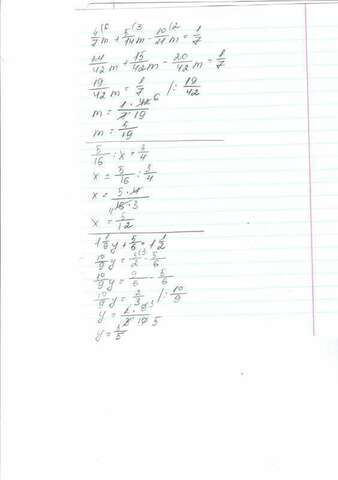 4/7 (6 m + 5/14 (3 m - 10/21 (2 m = 1/7
24/42 m + 15/42 m - 20/42 m = 1/7
19/42 m = 1/7 /: 19/42
m = 1 · 42 6 / 7 · 19
m = 6/19
5/16 : x = 3/4
x = 5/16 : 3/4
x = 5 · 4 / 4 16 · 3
x = 5/12
1 1/9 y + 5/6 = 1 1/2
10/9 y = 3/2 (3 - 5/6
10/9 y = 9/6 - 5/6
10/9 y = 2/3 /: 10/9
y = 2 · 9 3 / 3 · 10 5
y = 3/5